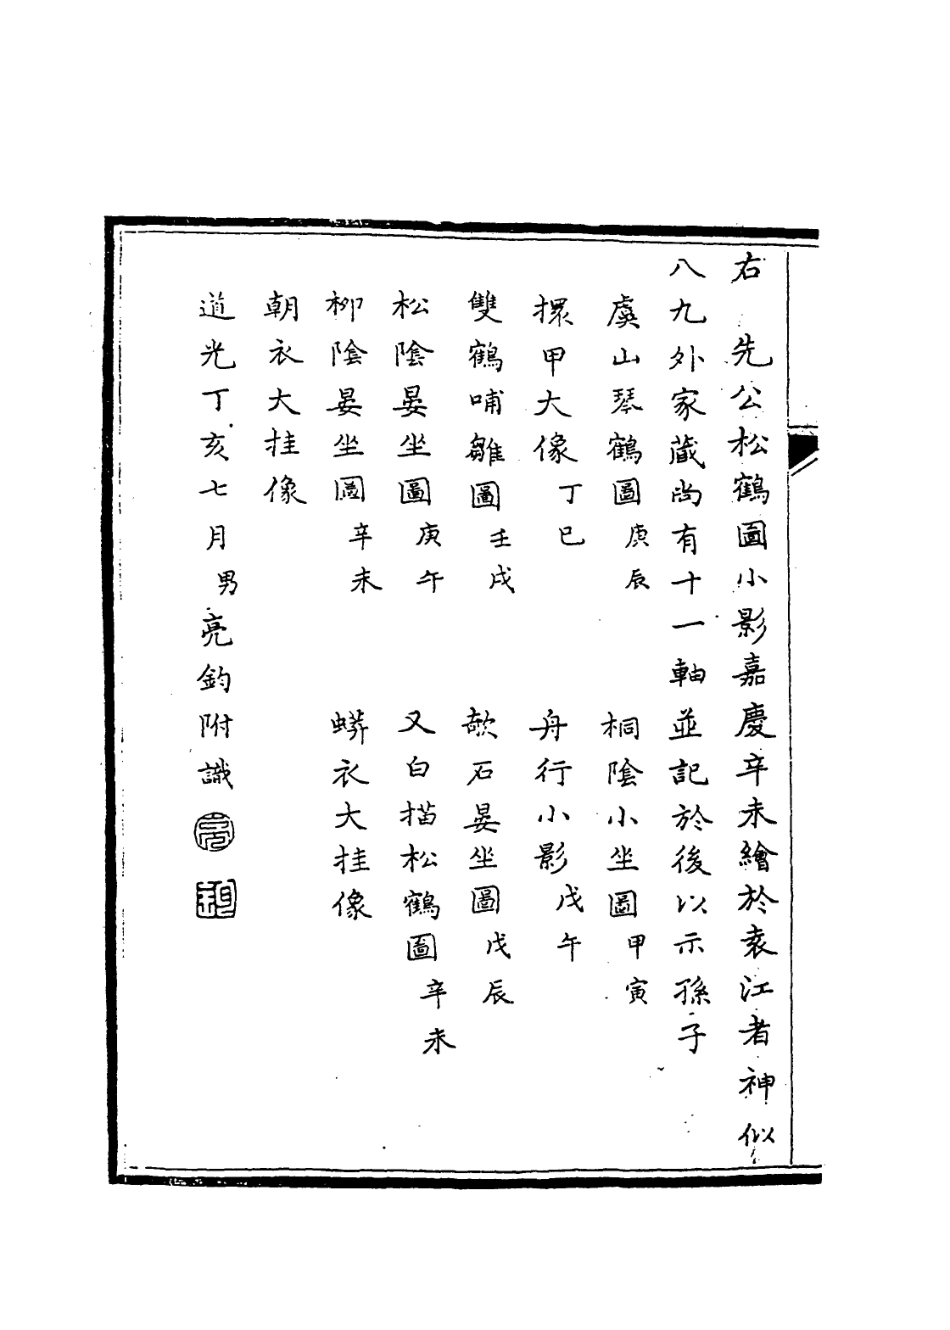 右 先公松鶴圖小影嘉慶辛未繪於袁江者神似
八九外家藏尚有十一軸並記於後以示孫子
虞山琴鶴圖庚辰 桐陰小坐圖甲寅
擐甲大像丁巳 舟行小影戊午
雙鶴哺雛圖壬戌 欹石晏坐圖戊辰
松陰晏坐圖庚午 又白描松鶴圖辛未
柳陰晏坐圖辛未 蟒衣大挂像
朝衣大挂像
道光丁亥七月男亮鈞附識